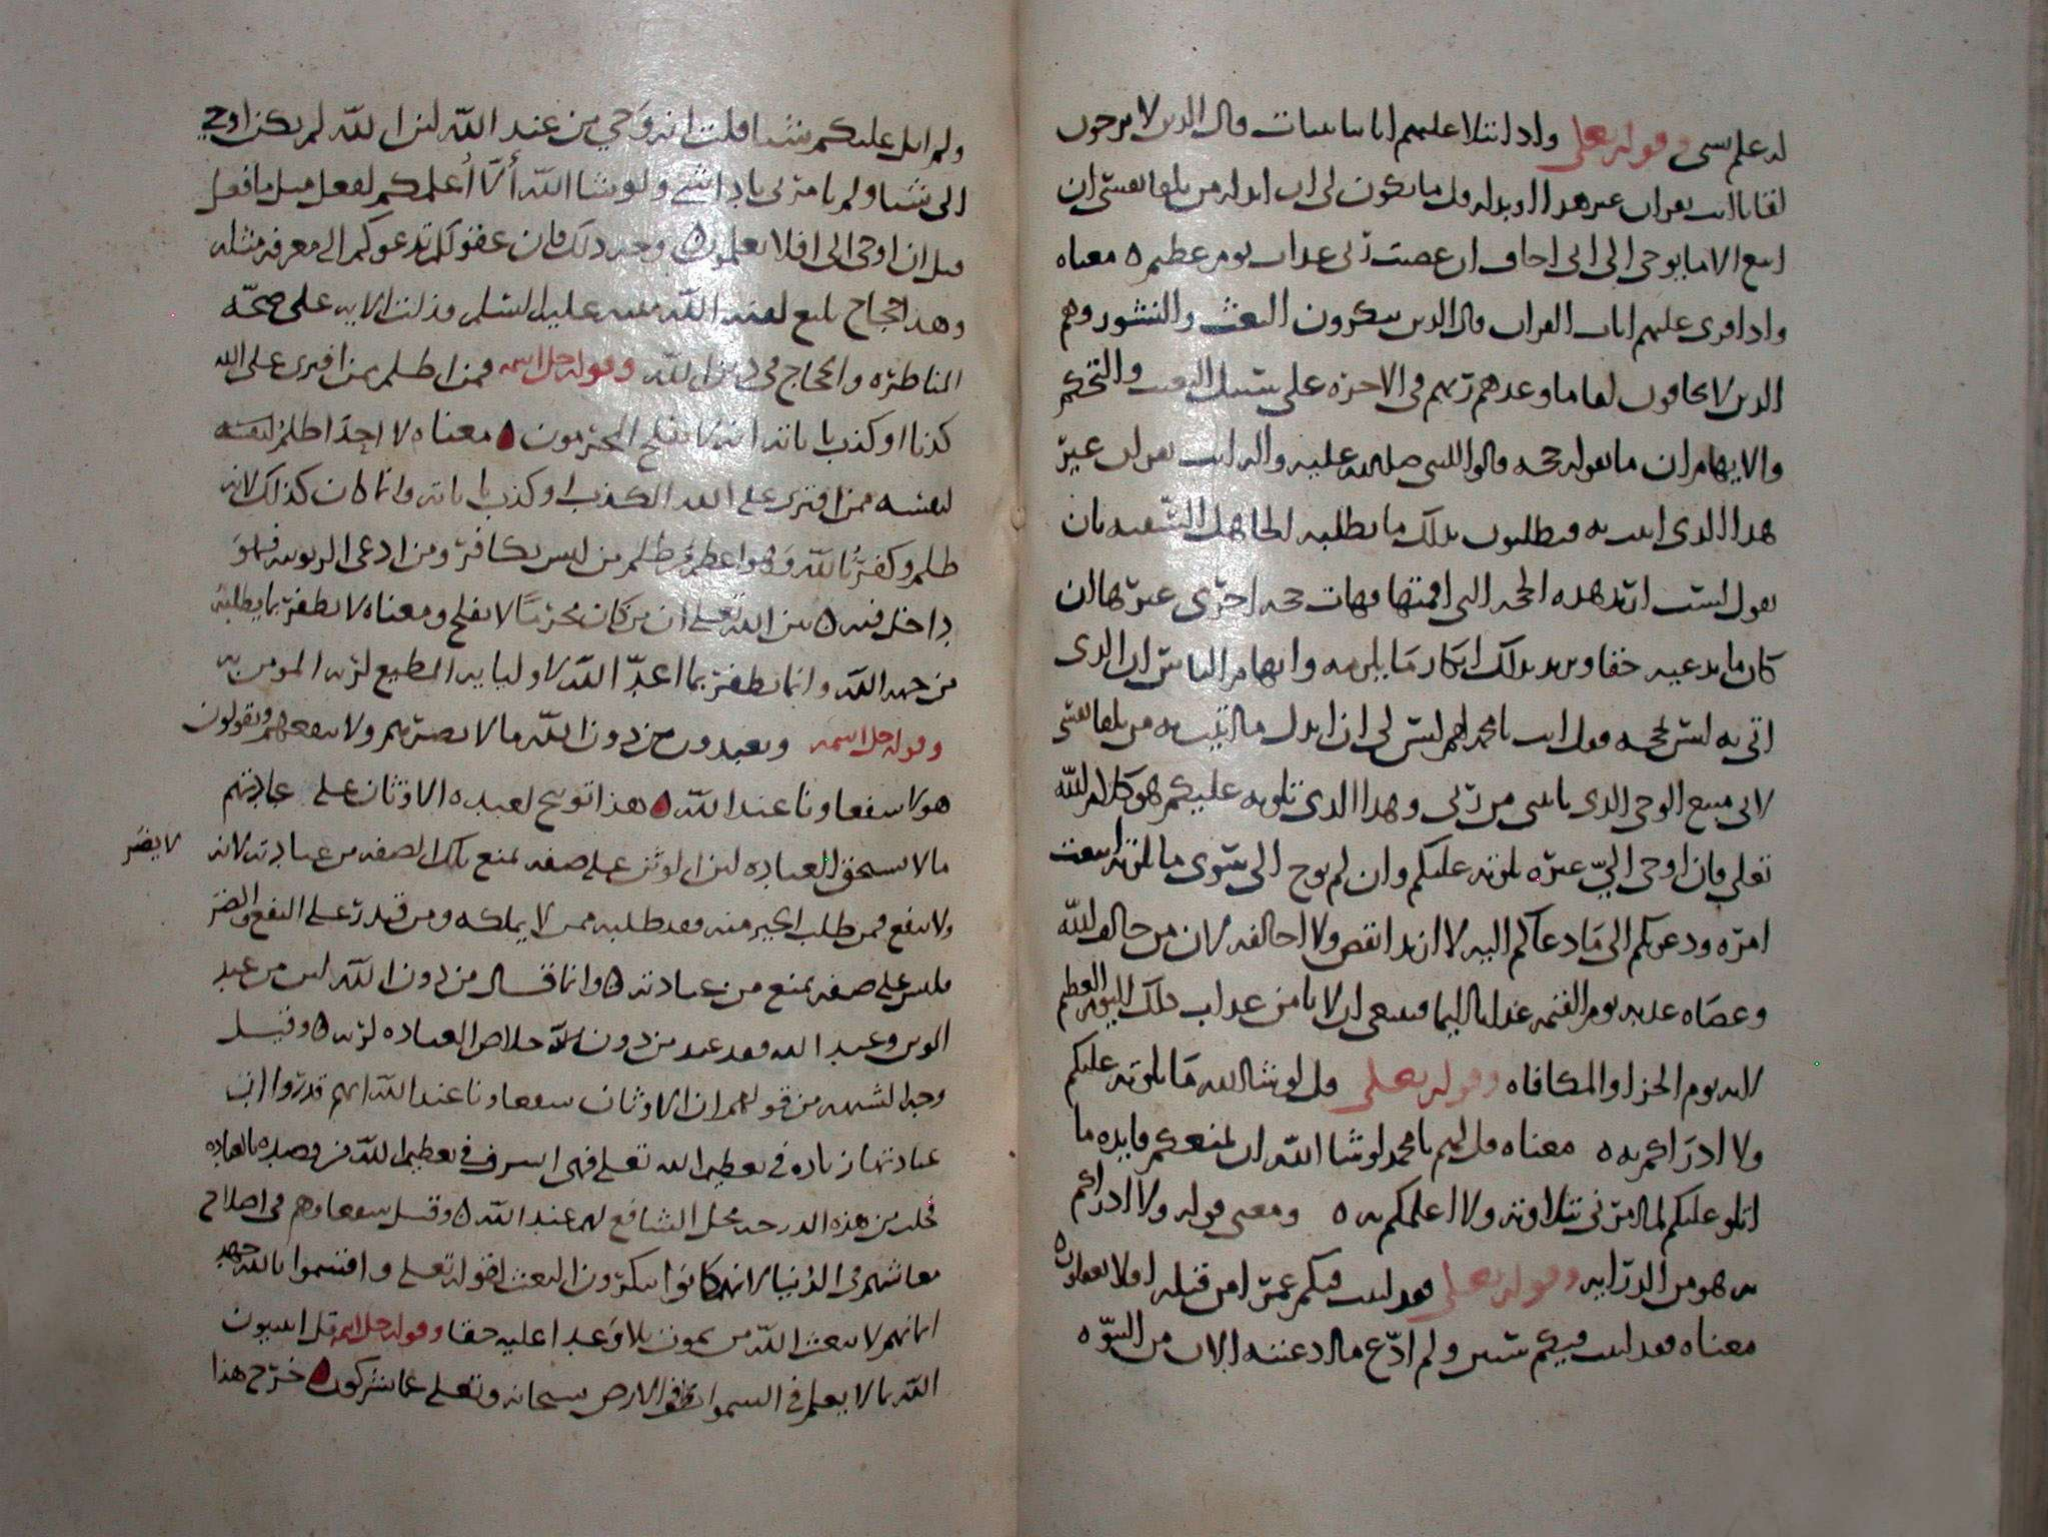 له علم بشي وقوله تعلى واذا تتلا عليهم اياتنا بينات قال الذين لا يرجون
لقانا ات بقران غير هذا او بدله قل ما يكون لي ان ابدله من تلقا نفسي ان
اتبع الا ما يوحى الي اني اخاف ان عصيت ربي عذاب يوم عظيم ه معناه
واذا قرى عليهم ايات القران قال الذين ينكرون البعث والنشور وهم
الذين لا يخافون لقا ما وعدهم ربهم في الاخرة على سبيل التعنت والتحكم
والايهام ان ما تقوله حجه قالوا للنبي صلى الله عليه واله ايت بقران غير
هذا الذي اتيت به فيطلبون بذلك ما يطلبه الجاهل السفيه بان
يقول لست اريد هذه الحجه التي اقمتها فهات حجه اخرى غيرها ان
كان ما يدعيه حقا ويريد بذلك انكار ما يلزمه وايهام الناس ان الذي
اتى به ليس بحجه فقل انت يا محمد لهم ليس لي ان ابدل ما اتيت به من تلقا نفسي
لاني متبع الوحي الذي ياتيني من ربي وهذا الذي تلوته عليكم هو كلام الله
تعلى فان اوحى اليّ غيره تلوته عليكم وان لم يوح الي سوى ما تلوته اتبعت
امره ودعوتكم الى ما دعاكم اليه لا ازيد انقص ولا اخالفه لان من خالف الله
وعصاه عذبه يوم القيمة عذابا اليما فينبغي ان لا يامن عذاب ذلك اليوم العظيم
لانه يوم الجزا والمكافاه وقوله تعلى قل لو شا الله ما تلوته عليكم
ولا ادراكم به ه معناه قل لهم يا محمد لو شا الله ان يمنعكم فايده ما
اتلو عليكم لما امرني بتلاوته ولا اعلمكم به ه ومعنى قوله ولا ادراكم
به هو من الدرايه وقوله تعلى فقد لبثت فيكم عمرا من قبله افلا تعقلون ه
معناه فقد لبثت فيكم سنين ولم ادّع ما ادعيته الان من النبوّه
ولم اتل عليكم شيئا قلت انه وحي من عند الله لان الله لم يكن اوحى
الي شيئا ولم يامرني بادا شي ولو شا الله ألّا أعلمكم لفعل مثل ما فعل
قبل ان اوحى الي افلا تعلمون ه وجه ذلك فان عقولكم تدعوكم الى معرفه مثله
وهذا احتجاج بليغ لقنه الله نبيه عليه السلم ودلت الايه على صحّه
المناظره والحجاج في دين الله وقوله جل اسمه فمن اظلم ممن افترى على الله
كذبا او كذب باياته انه لا يفلح المجرمون ه معناه لا احد اظلم لنفسه
لنفسه ممن افترى على الله الكذب او كذب باياته وانما كان كذلك لانه
ظلم وكفر بالله وهو اعظم من ظلم من ليس بكافر ومن ادعى الربوبيه فهو
داخل فيه ه بين الله تعلى ان من كان مجرمًا لا يفلح ومعناه لا يظفر بما يطلبه
من جهه الله وانما يظفر بما اعدّ الله لاوليايه المطيع لربه المومن به
وقوله جل اسمه ويعبدون من دون الله ما لا يضرهم ولا ينفعهم ويقولون
هولا شفعاونا عند الله ه هذا توبيخ لعبده الاوثان على عبادتهم
ما لا يستحق العباده لان الوثن على صفه تمنع تلك الصفه من عبادته لانه لا يضر
ولا ينفع فمن طلب الخير منه فقد طلبه ممن لا يملكه ومن قدر على النفع والضر
فليس على صفه تمنع من عبادته ه وانما قال من دون الله لان من عبد
الوثن وعبد الله فقد عبد من دون الله خلاص العباده لربه ه وقيل
وجه الشبهه من قولهم ان الاوثان شفعاونا عند الله انهم قدروا ان
عبادتها زياده في تعظيم الله تعلى فهي اسرف في تعظيم الله من قصده بالعباده
فحلت من هذه الدرجه محل الشافع لهم عند الله ه وقيل شفعاوهم في اصلاح
معاشهم في الدنيا لانهم كانوا ينكرون البعث لقوله تعلى واقسموا بالله جهد
ايمانهم لا يبعث الله من يموت بلا وعدا عليه حقا وقوله جل اسمه قل اتنبيون
الله بما لا يعلم في السموات ولا في الارض سبحانه وتعلى عما يشركون ه خرج هذا